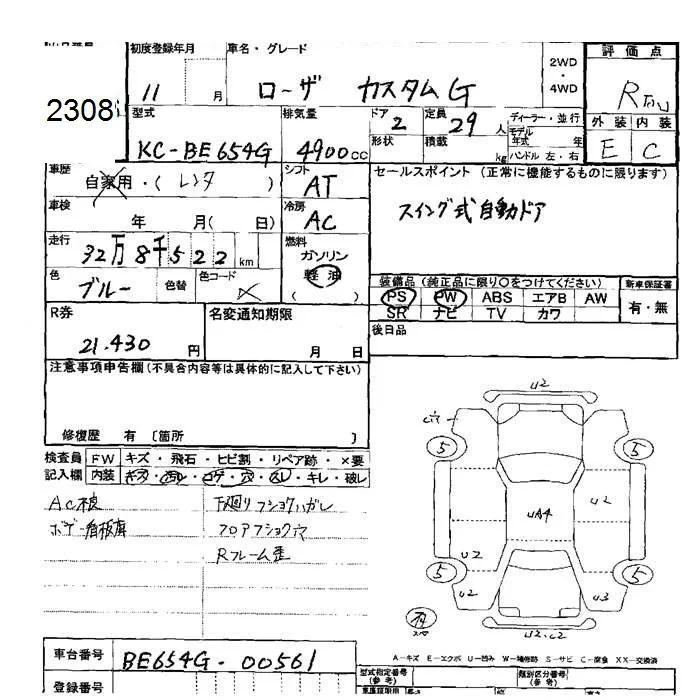 2308
初度登録年月 車名・グレード
11 月 ローザ カスタムG
2WD
・
4WD
評価点
R
外装 内装
E C
型式 排気量 ドア 定員 ディーラー・並行
KC-BE654G 4900cc 2 29人
モデル年式 年
形状 積載 kg ハンドル 左・右
車歴 シフト
自家用・(レンタ) AT
セールスポイント (正常に機能するものに限ります)
スイング式自動ドア
車検 冷房
年 月( 日) AC
走行 燃料
32万8千522km ガソリン
軽油
( )
色 色替 色コード
ブルー
装備品 (純正品に限り○をつけてください) 新車保証書
PS PW ABS エアB AW 有・無
SR ナビ TV カワ
後日品
R券 名変通知期限
21.430円 月 日
注意事項申告欄(不具合内容等は具体的に記入して下さい)
修復歴 有 〔箇所 〕
検査員 FW キズ・飛石・ヒビ割・リペア跡・×要
記入欄 内装 キズ・汚レ・コゲ・穴・スレ・キレ・破レ
下廻りフショクハガレ
フロアフショク穴
Rフレーム歪
U2
穴
5 5
UA4 U2
U2
5 5
U2 U3
U2.C2
A－キズ E－エクボ U－凹み W－補修跡 S－サビ C－腐食 XX－交換済
車台番号 BE654G-00561
登録番号
型式指定番号(参考) 類別区分番号(参考)